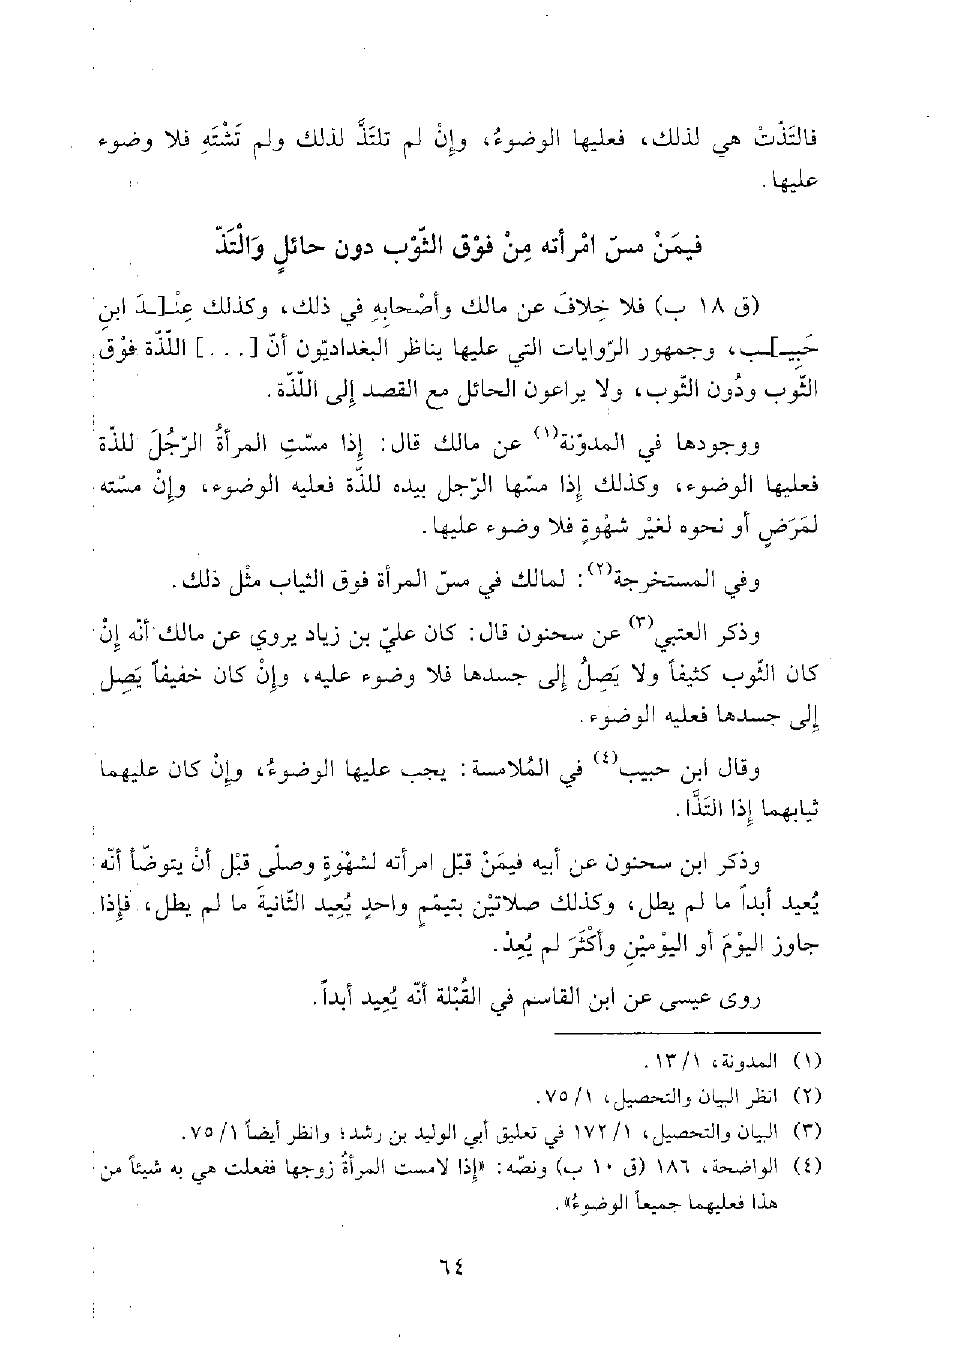 فالتَذّتْ هي لذلك، فعليها الوضوءُ، وإنْ لم تلتَذَّ لذلك ولم تَشْتَهِ فلا وضوء
عليها.
فيمَنْ مسّ امْرأته مِنْ فوْق الثّوْب دون حائلٍ وَالْتَذّ
(ق ١٨ ب) فلا خِلافَ عن مالك وأصْحابِهِ في ذلك، وكذلك عِنْـ[ـدَ ابنِ
حَبِيـ]ـب، وجمهور الرّوايات التي عليها يناظر البغداديّون أنّ [...] اللّذّة فوْق
الثّوب ودُون الثّوب، ولا يراعون الحائل مع القصد إلى اللّذّة.
ووجودها في المدوّنة(١) عن مالك قال: إذا مسّتِ المرأةُ الرّجُلَ للذّة
فعليها الوضوء، وكذلك إذا مسّها الرّجل بيده للذّة فعليه الوضوء، وإنْ مسّته
لمَرَضٍ أو نحوه لغيْر شهْوةٍ فلا وضوء عليها.
وفي المستخرجة(٢): لمالك في مسّ المرأة فوق الثياب مثْل ذلك.
وذكر العتبي(٣) عن سحنون قال: كان عليّ بن زياد يروي عن مالك أنّه إنْ
كان الثّوب كثيفاً ولا يَصِلُ إلى جسدها فلا وضوء عليه، وإنْ كان خفيفاً يَصِل
إلى جسدها فعليه الوضوء.
وقال ابن حبيب(٤) في المُلامسة: يجب عليها الوضوءُ، وإنْ كان عليهما
ثيابهما إذا التَذَّا.
وذكر ابن سحنون عن أبيه فيمَنْ قبّل امرأته لشهْوةٍ وصلّى قبْل أنْ يتوضّأ أنّه
يُعيد أبداً ما لم يطل، وكذلك صلاتيْن بتيمّمٍ واحدٍ يُعِيد الثّانيةَ ما لم يطل، فإذا
جاوز اليوْمَ أو اليوْميْنِ وأكْثَرَ لم يُعِدْ.
روى عيسى عن ابن القاسم في القُبْلة أنّه يُعِيد أبداً.
(١) المدونة، ١/ ١٣.
(٢) انظر البيان والتحصيل، ١/ ٧٥.
(٣) البيان والتحصيل، ١/ ١٧٢ في تعليق أبي الوليد بن رشد؛ وانظر أيضاً ١/ ٧٥.
(٤) الواضحة، ١٨٦ (ق ١٠ ب) ونصّه: «إذا لامست المرأةُ زوجها ففعلت هي به شيئاً من
هذا فعليهما جميعاً الوضوءُ».
٦٤